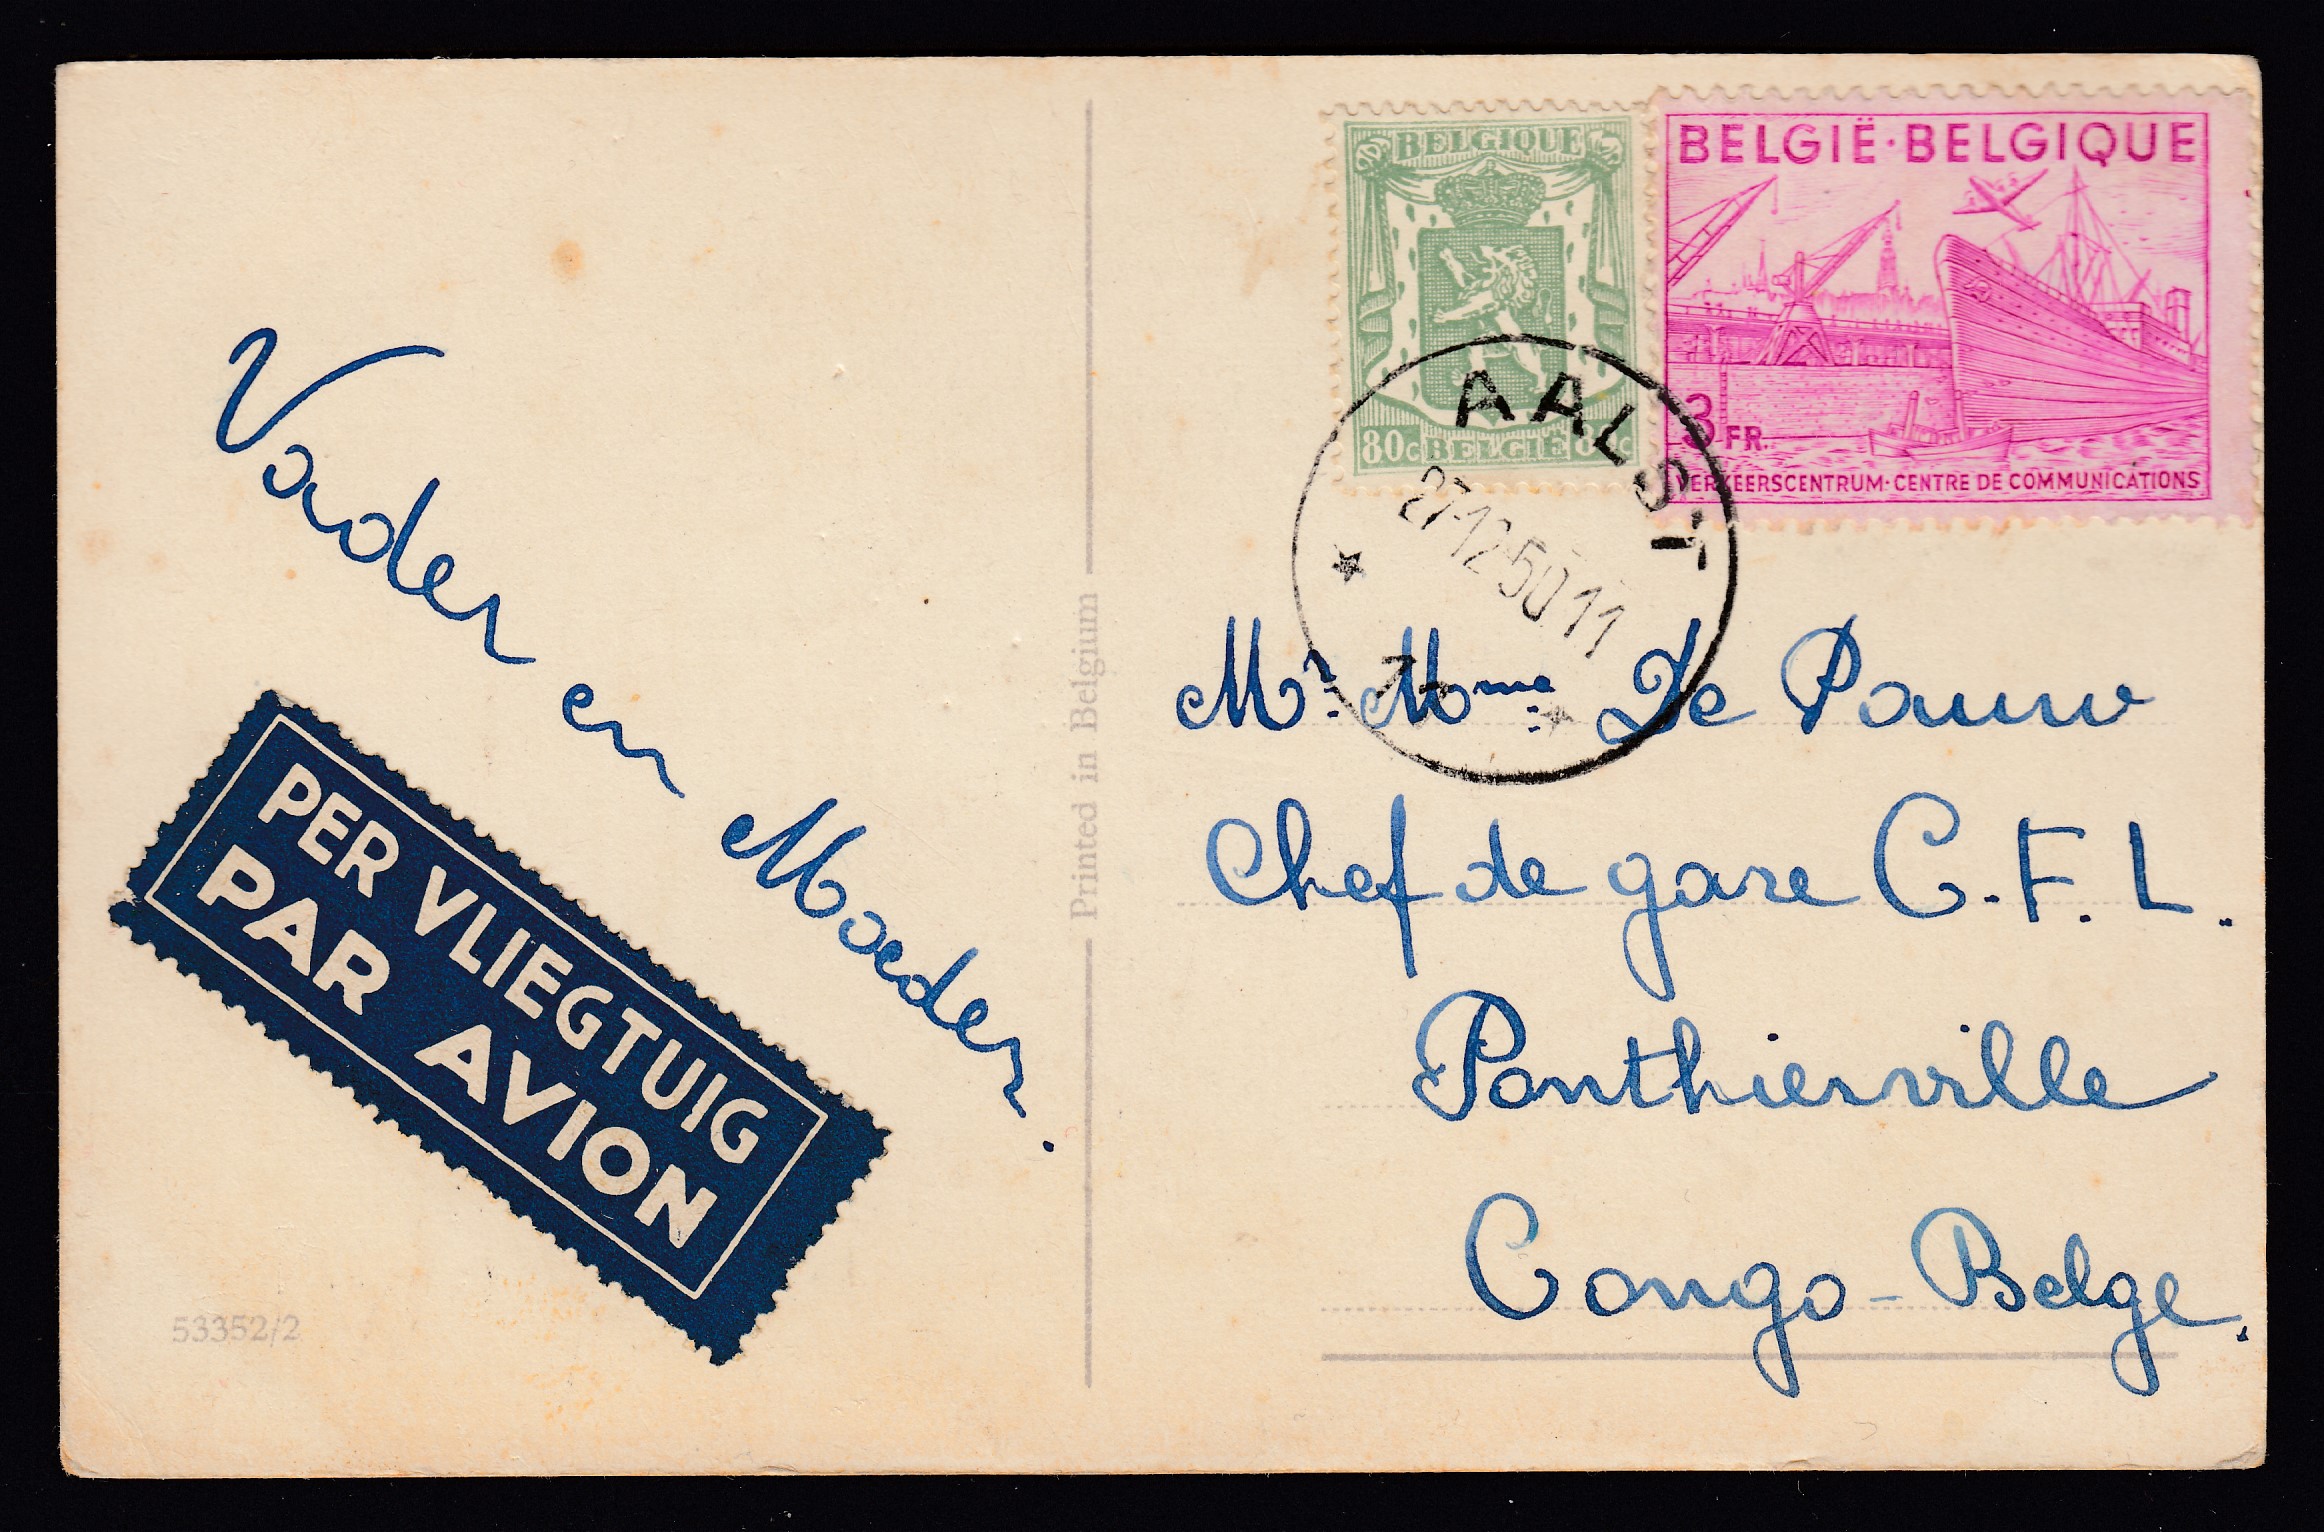 Vader en Moeder.
PER VLIEGTUIG
PAR AVION
53352/2
Printed in Belgium
BELGIQUE
80c BELGIË 80c
BELGIË·BELGIQUE
3 FR.
VERKEERSCENTRUM·CENTRE DE COMMUNICATIONS
AALST
27-12-50 11
Mr. Mme. De Pauw
Chef de gare C.F.L.
Ponthierville
Congo-Belge.